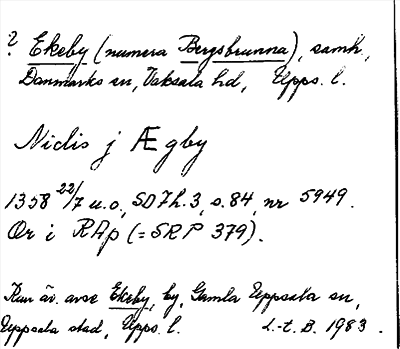 ? Ekeby (numera Bergsbrunna), samh.,
Danmarks sn, Vaksala hd, Upps. l.
Niclis j Ægby
1358 22/7 u.o, SD 7 h. 3, s. 84, nr 5949.
Or i RAp (= SRP 379).
Kan äv. avse Ekeby, by, Gamla Uppsala sn,
Uppsala stad, Upps. l.
L.-t. B. 1983.